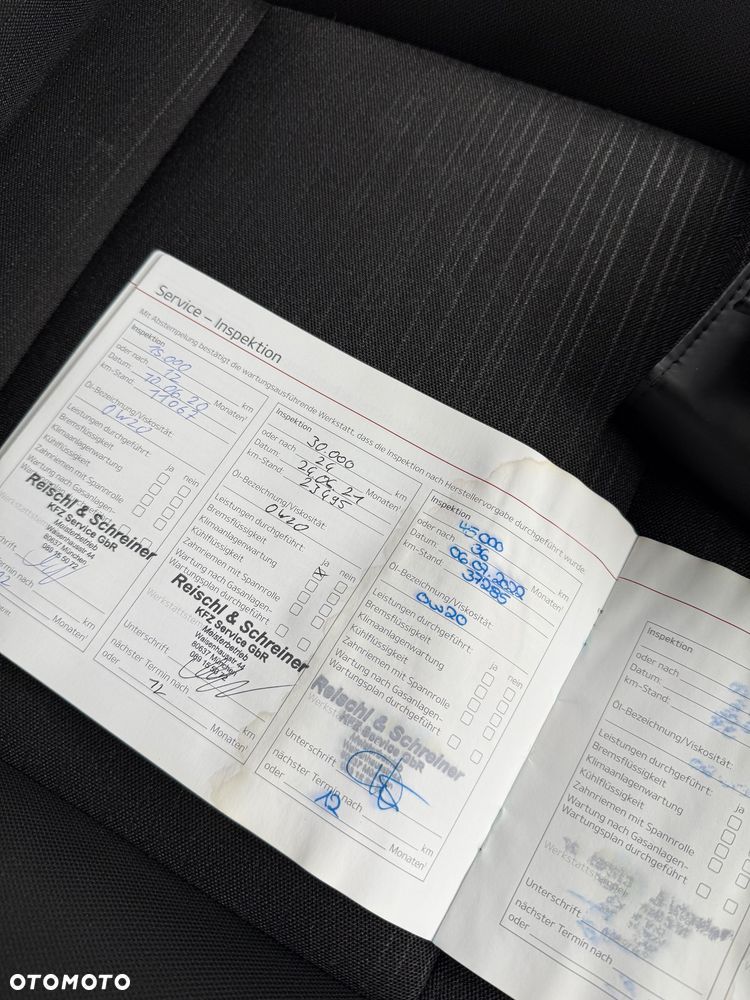 Service – Inspektion
Mit Abstempelung bestätigt die wartungsausführende Werkstatt, dass die Inspektion nach Herstellervorgabe durchgeführt wurde.
Inspektion
15.000 km
oder nach 12 Monaten¹
Datum: 10.06.20
km-Stand: 11067
Öl-Bezeichnung/Viskosität:
0W20
Leistungen durchgeführt: ja nein
Bremsflüssigkeit
Klimaanlagenwartung
Kühlflüssigkeit
Zahnriemen mit Spannrolle
Wartung nach Gasanlagen-
Reischl & Schreiner
KFZ Service GbR
Meisterbetrieb
Waisenhausstr. 44
80637 München
089 15 50 72
km
Monaten¹
Inspektion
30.000 km
oder nach 24 Monaten¹
Datum: 24.06.21
km-Stand: 23495
Öl-Bezeichnung/Viskosität:
0W20
Leistungen durchgeführt: ja nein
Bremsflüssigkeit
Klimaanlagenwartung
Kühlflüssigkeit
Zahnriemen mit Spannrolle
Wartung nach Gasanlagen-
Wartungsplan durchgeführt
Reischl & Schreiner
KFZ Service GbR
Meisterbetrieb
Waisenhausstr. 44
80637 München
089 15 50 72
Unterschrift
nächster Termin nach km
oder 12 Monaten¹
Inspektion
45.000 km
oder nach 36 Monaten¹
Datum:
km-Stand: 37285
Öl-Bezeichnung/Viskosität:
0W20
Leistungen durchgeführt: ja nein
Bremsflüssigkeit
Klimaanlagenwartung
Kühlflüssigkeit
Zahnriemen mit Spannrolle
Wartung nach Gasanlagen-
Wartungsplan durchgeführt
Reischl & Schreiner
KFZ Service GbR
Unterschrift
nächster Termin nach km
oder 12 Monaten¹
Inspektion
oder nach
Datum:
km-Stand:
Öl-Bezeichnung/Viskosität:
Leistungen durchgeführt: ja
Bremsflüssigkeit
Klimaanlagenwartung
Kühlflüssigkeit
Zahnriemen mit Spannrolle
Wartung nach Gasanlagen-
Wartungsplan durchgeführt
Werkstattstempel
Unterschrift
nächster Termin nach
oder
OTOMOTO